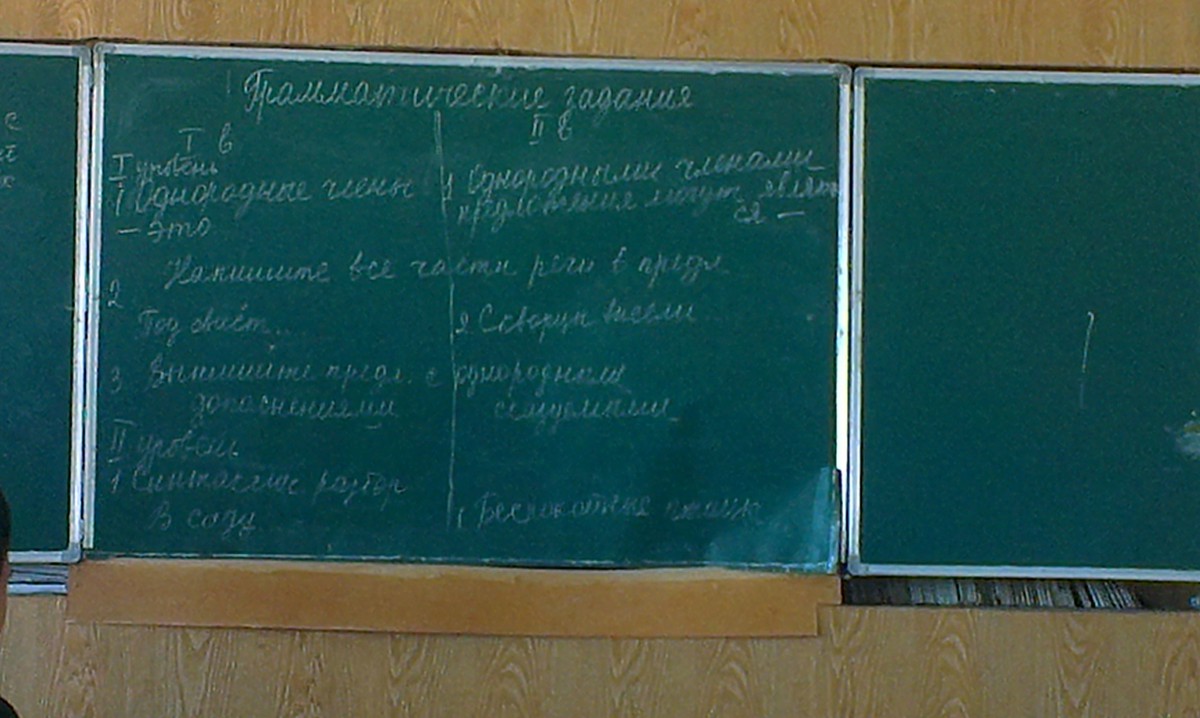 Грамматические задания
I в
II в
I уровень
1 Однородные члены
– это
1 Однородными членами
предложения могут являть
ся –
Напишите все части речи в предл
2
Под свист...
2 Скворцы
3 Выпишите предл. с однородными
дополнениями
сказуемыми
II уровень
1 Синтаксич разбор
В саду
1 Беспокойные
с